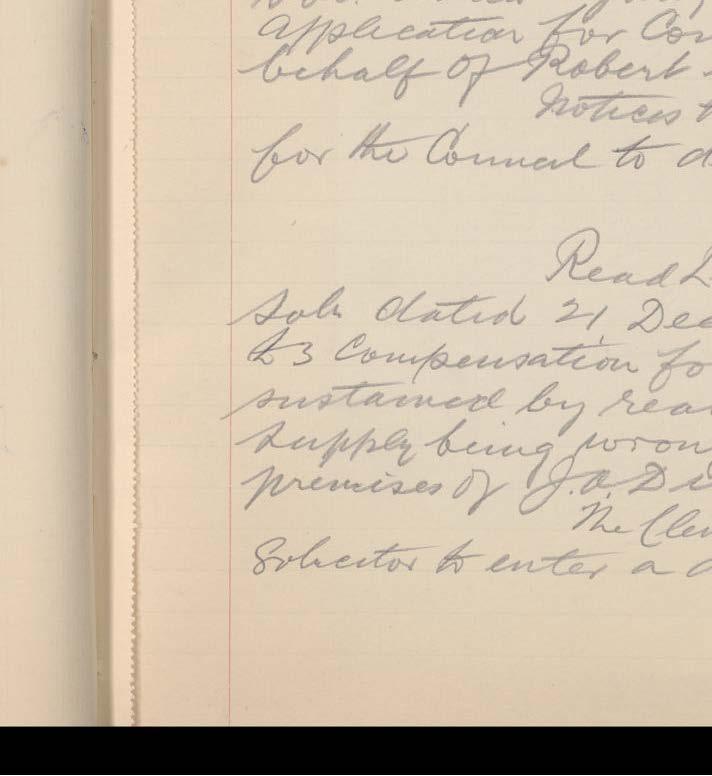 Application for Con
behalf of Robert
Notices t
for the Council to d
Read L
Sols dated 21 Dec
£3 Compensation fo
sustained by rea
supply being wron
premises of J. A. Di
The Cler
Solicitor to enter a d